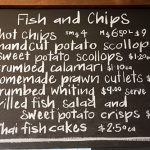 Fish and Chips
hot chips sm $4 m $6.50 - $9
handcut potato scollops
sweet potato scollops $1.20
crumbed calamari $10
homemade prawn cutlets $
crumbed whiting $9.00 serve
grilled fish, salad and
sweet potato crisps $
thai fish cakes $2.50 ea